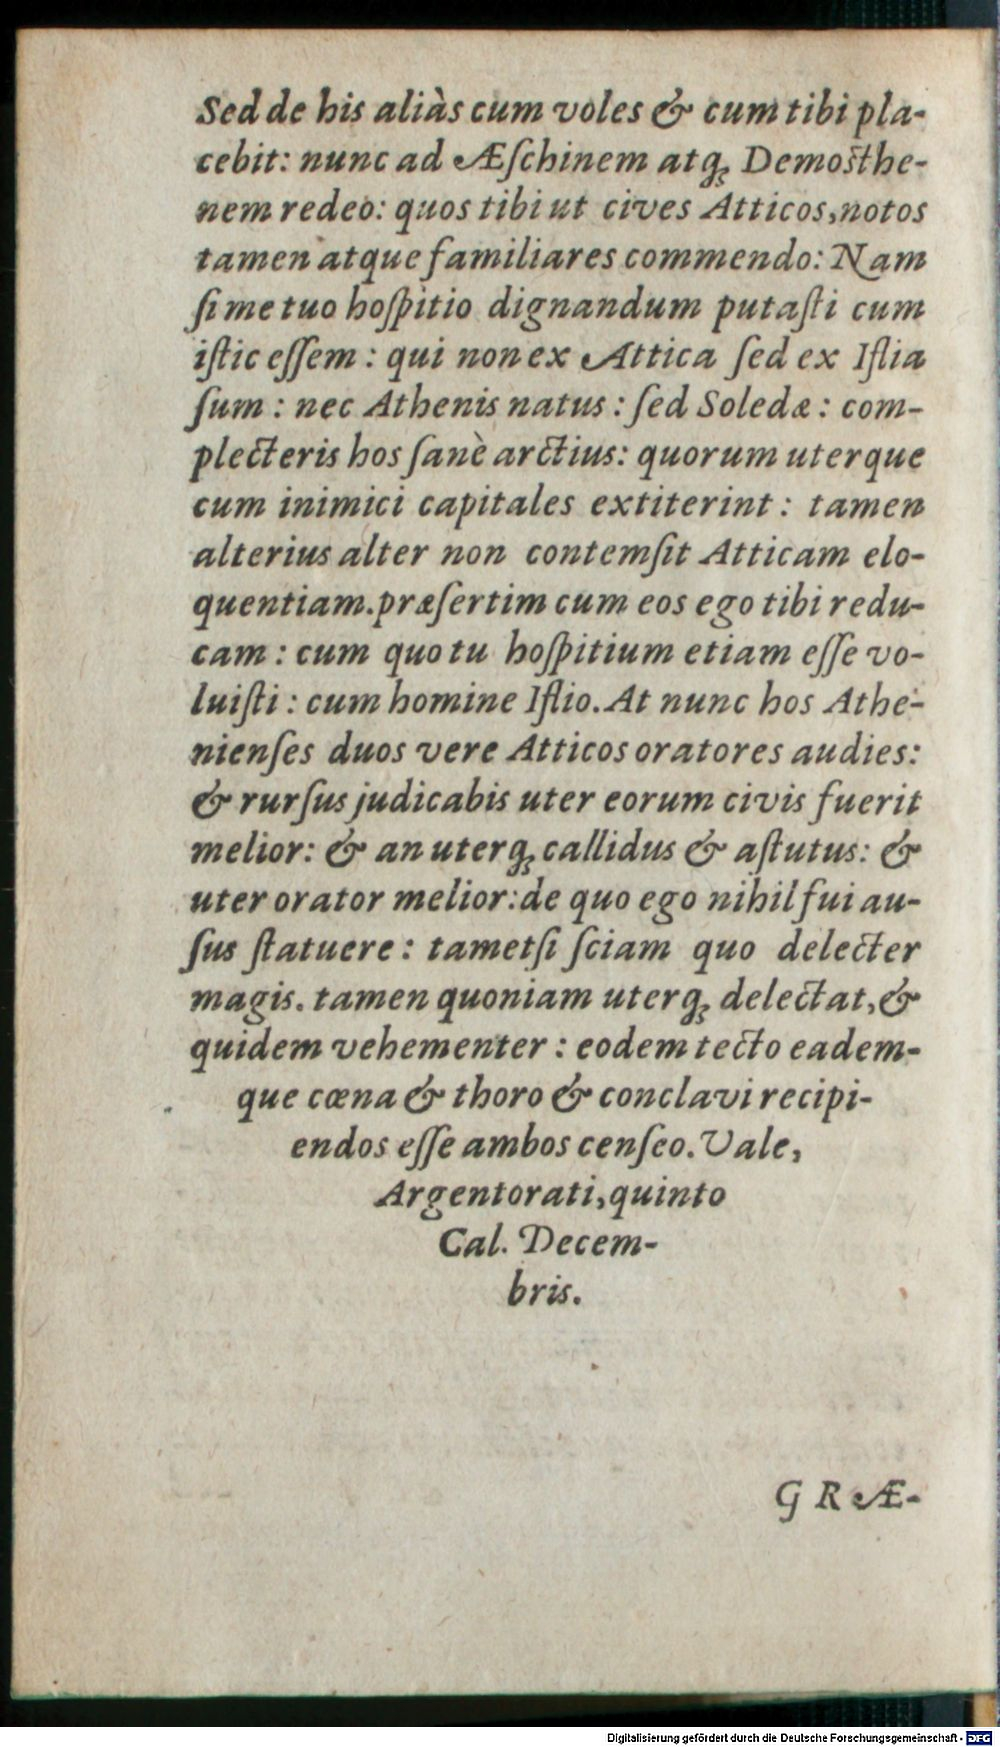 Sed de his aliàs cum voles & cum tibi pla-
cebit: nunc ad Æſchinem atq; Demoſthe-
nem redeo: quos tibi ut cives Atticos, notos
tamen atque familiares commendo: Nam
ſi me tuo hoſpitio dignandum putaſti cum
iſtic eſſem: qui non ex Attica ſed ex Iſlia
ſum: nec Athenis natus: ſed Soledæ: com-
plecteris hos ſanè arctius: quorum uterque
cum inimici capitales extiterint: tamen
alterius alter non contemſit Atticam elo-
quentiam. præſertim cum eos ego tibi redu-
cam: cum quo tu hoſpitium etiam eſſe vo-
luiſti: cum homine Iſlio. At nunc hos Athe-
nienſes duos vere Atticos oratores audies:
& rurſus judicabis uter eorum civis fuerit
melior: & an uterq; callidus & aſtutus: &
uter orator melior: de quo ego nihil fui au-
ſus ſtatuere: tametſi ſciam quo delecter
magis. tamen quoniam uterq; delectat, &
quidem vehementer: eodem tecto eadem-
que cœna & thoro & conclavi recipi-
endos eſſe ambos cenſeo. Vale,
Argentorati, quinto
Cal. Decem-
bris.
GRÆ-
Digitalisierung gefördert durch die Deutsche Forschungsgemeinschaft - DFG